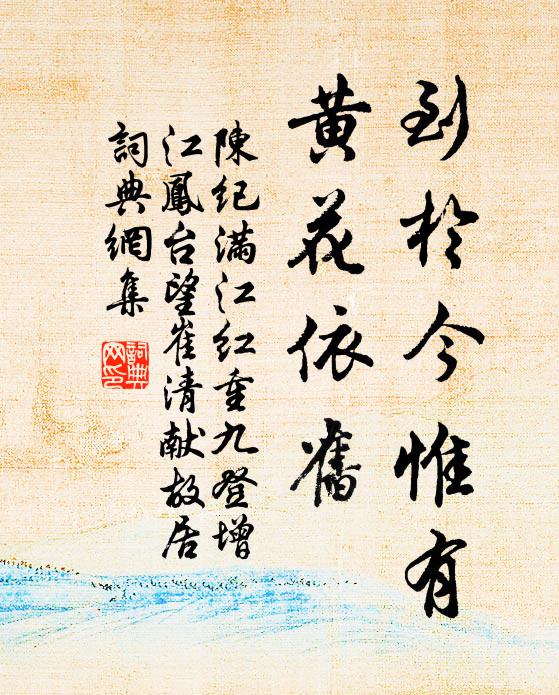 到於今惟有
黄花依舊
陳紀滿江紅重九登增
江鳳台望崔清献故居
詞典網集
詞典
网印